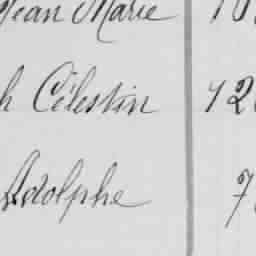 Jean Marie 10
h Célestin 12
Adolphe 7